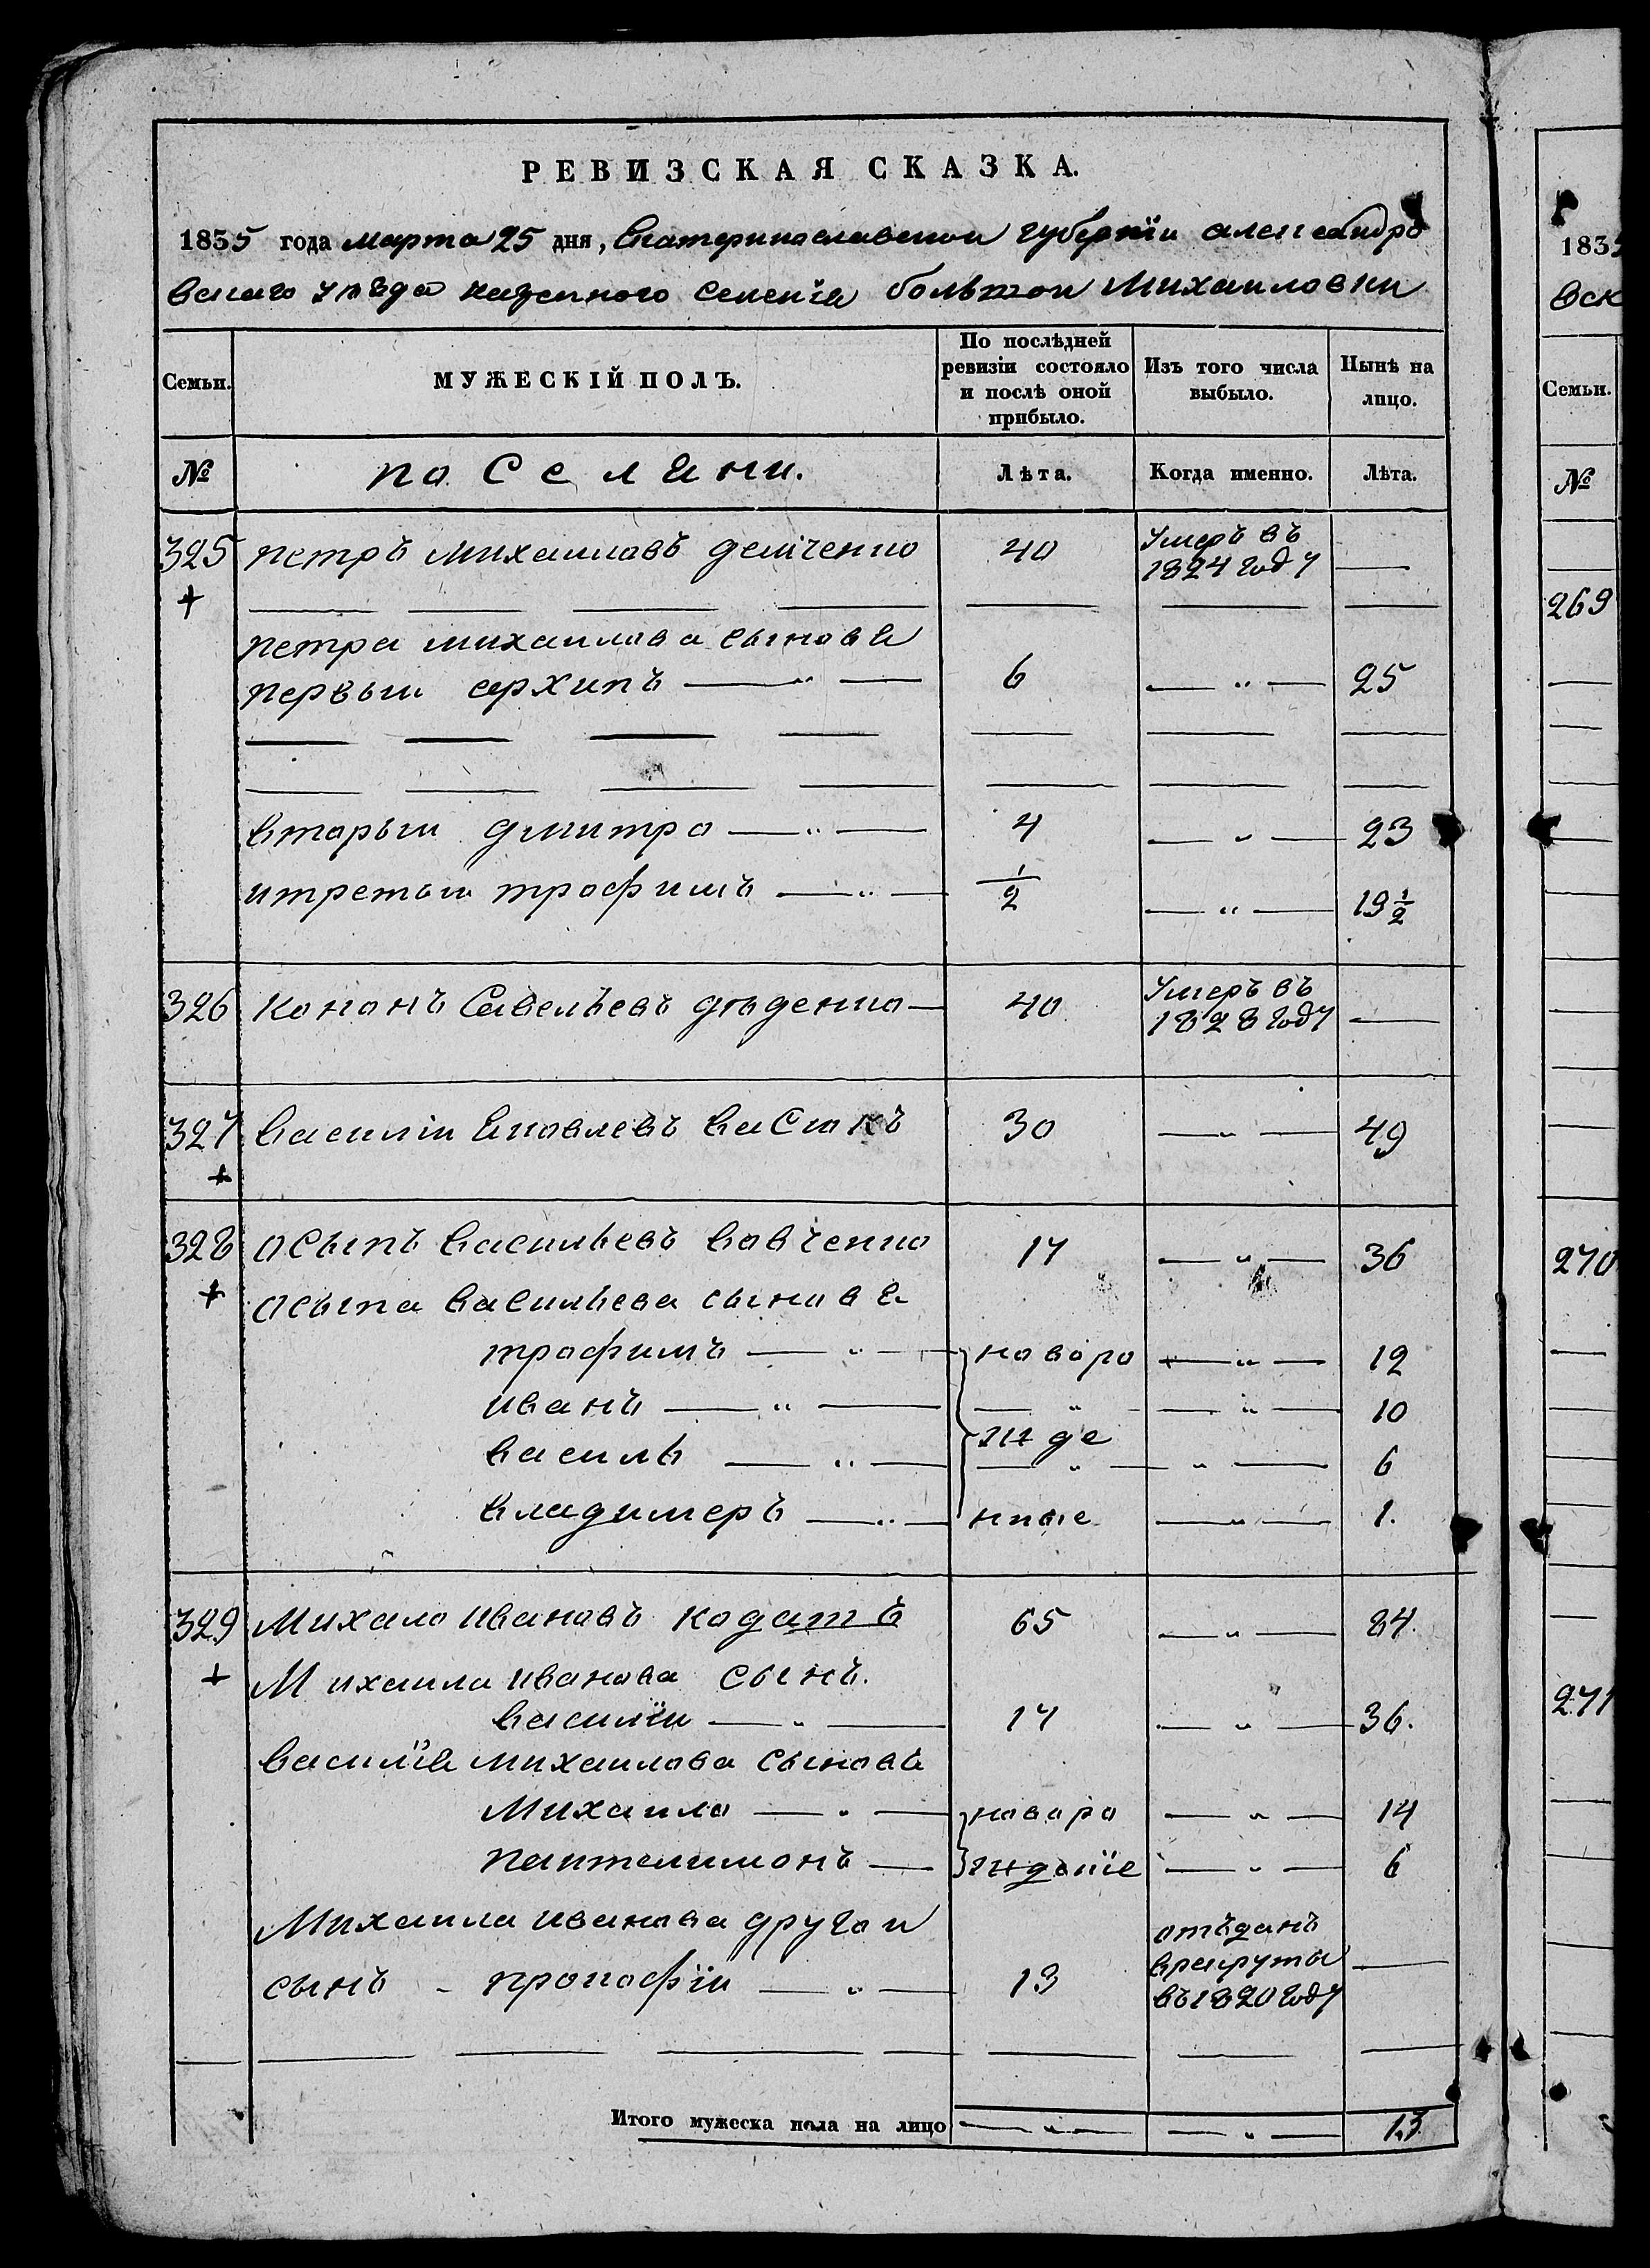 РЕВИЗСКАЯ СКАЗКА.
1835 года марта 25 дня, Екатеринославской губернїи александро
вскаго уѣзда казенного селенїя большои Михаиловки
Семьи. МУЖЕСКІЙ ПОЛЪ. По послѣдней ревизіи состояло и послѣ оной прибыло. Изъ того числа выбыло. Нынѣ на лицо.
№ поселяни. Лѣта. Когда именно. Лѣта.
325 петръ михаиловъ демченко 40 Умеръ въ 1824 году —
+
петра михаилова сыновя
первыи архипъ — „ — 6 — „ — 25
вторыи дмитро — „ — 4 — „ — 23
итретыи трофимъ — „ — 1/2 — „ — 19 1/2
326 кононъ Савельевъ дѣденко — 40 Умеръ въ 1828 году —
327 василіи Яковлевъ васюкъ 30 — „ — 49
+
328 осыпъ васильевъ вовченко 17 — „ — 36
+ осыпа васильева сыновя
трофимъ — „ — новоро — „ — 12
иванъ — „ — — „ — — „ — 10
жде
василь — „ — — „ — „ — 6
владимеръ — „ — нные — „ — 1.
329 Михало ивановъ кодатъ 65 — „ — 84.
+ Михаила иванова сынъ.
василїи — „ — 17 — „ — 36.
василїя михаилова сыновя
Михаило — „ — новоро — „ — 14
пантелимонъ — жд — „ — 6
Михаила иванова другои
сынъ - прокофїи — „ — 13 отъданъ врекруты въ 1820 году —
Итого мужеска пола на лицо — „ — — „ — 13.
1835
вск
Семьи.
№
269
270
271